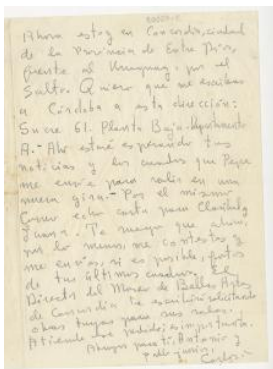 Ahora estoy en Concordia, ciudad
de la Provincia de Entre Ríos,
frente al Uruguay, por el
Salto. Quiero que me escribas
a Córdoba a esta dirección:
Sucre 61. Planta Baja. Departamento
A. - Ahí estaré esperando tus
noticias y los cuadros que Pepe
me envíe para salir en una
nueva gira. - Por el mismo
correo echo carta para Claribel y
Juana. Te ruego que ahora,
por lo menos, me contestes y
me envíes, si es posible, fotos
de tus últimos cuadros. El
Director del Museo de Bellas Artes
de Concordia te escribirá solicitando
obras tuyas para sus salas.
Atiende ese pedido: es importante.
Abrazos para ti, Antonio y
Pablo
Carlos